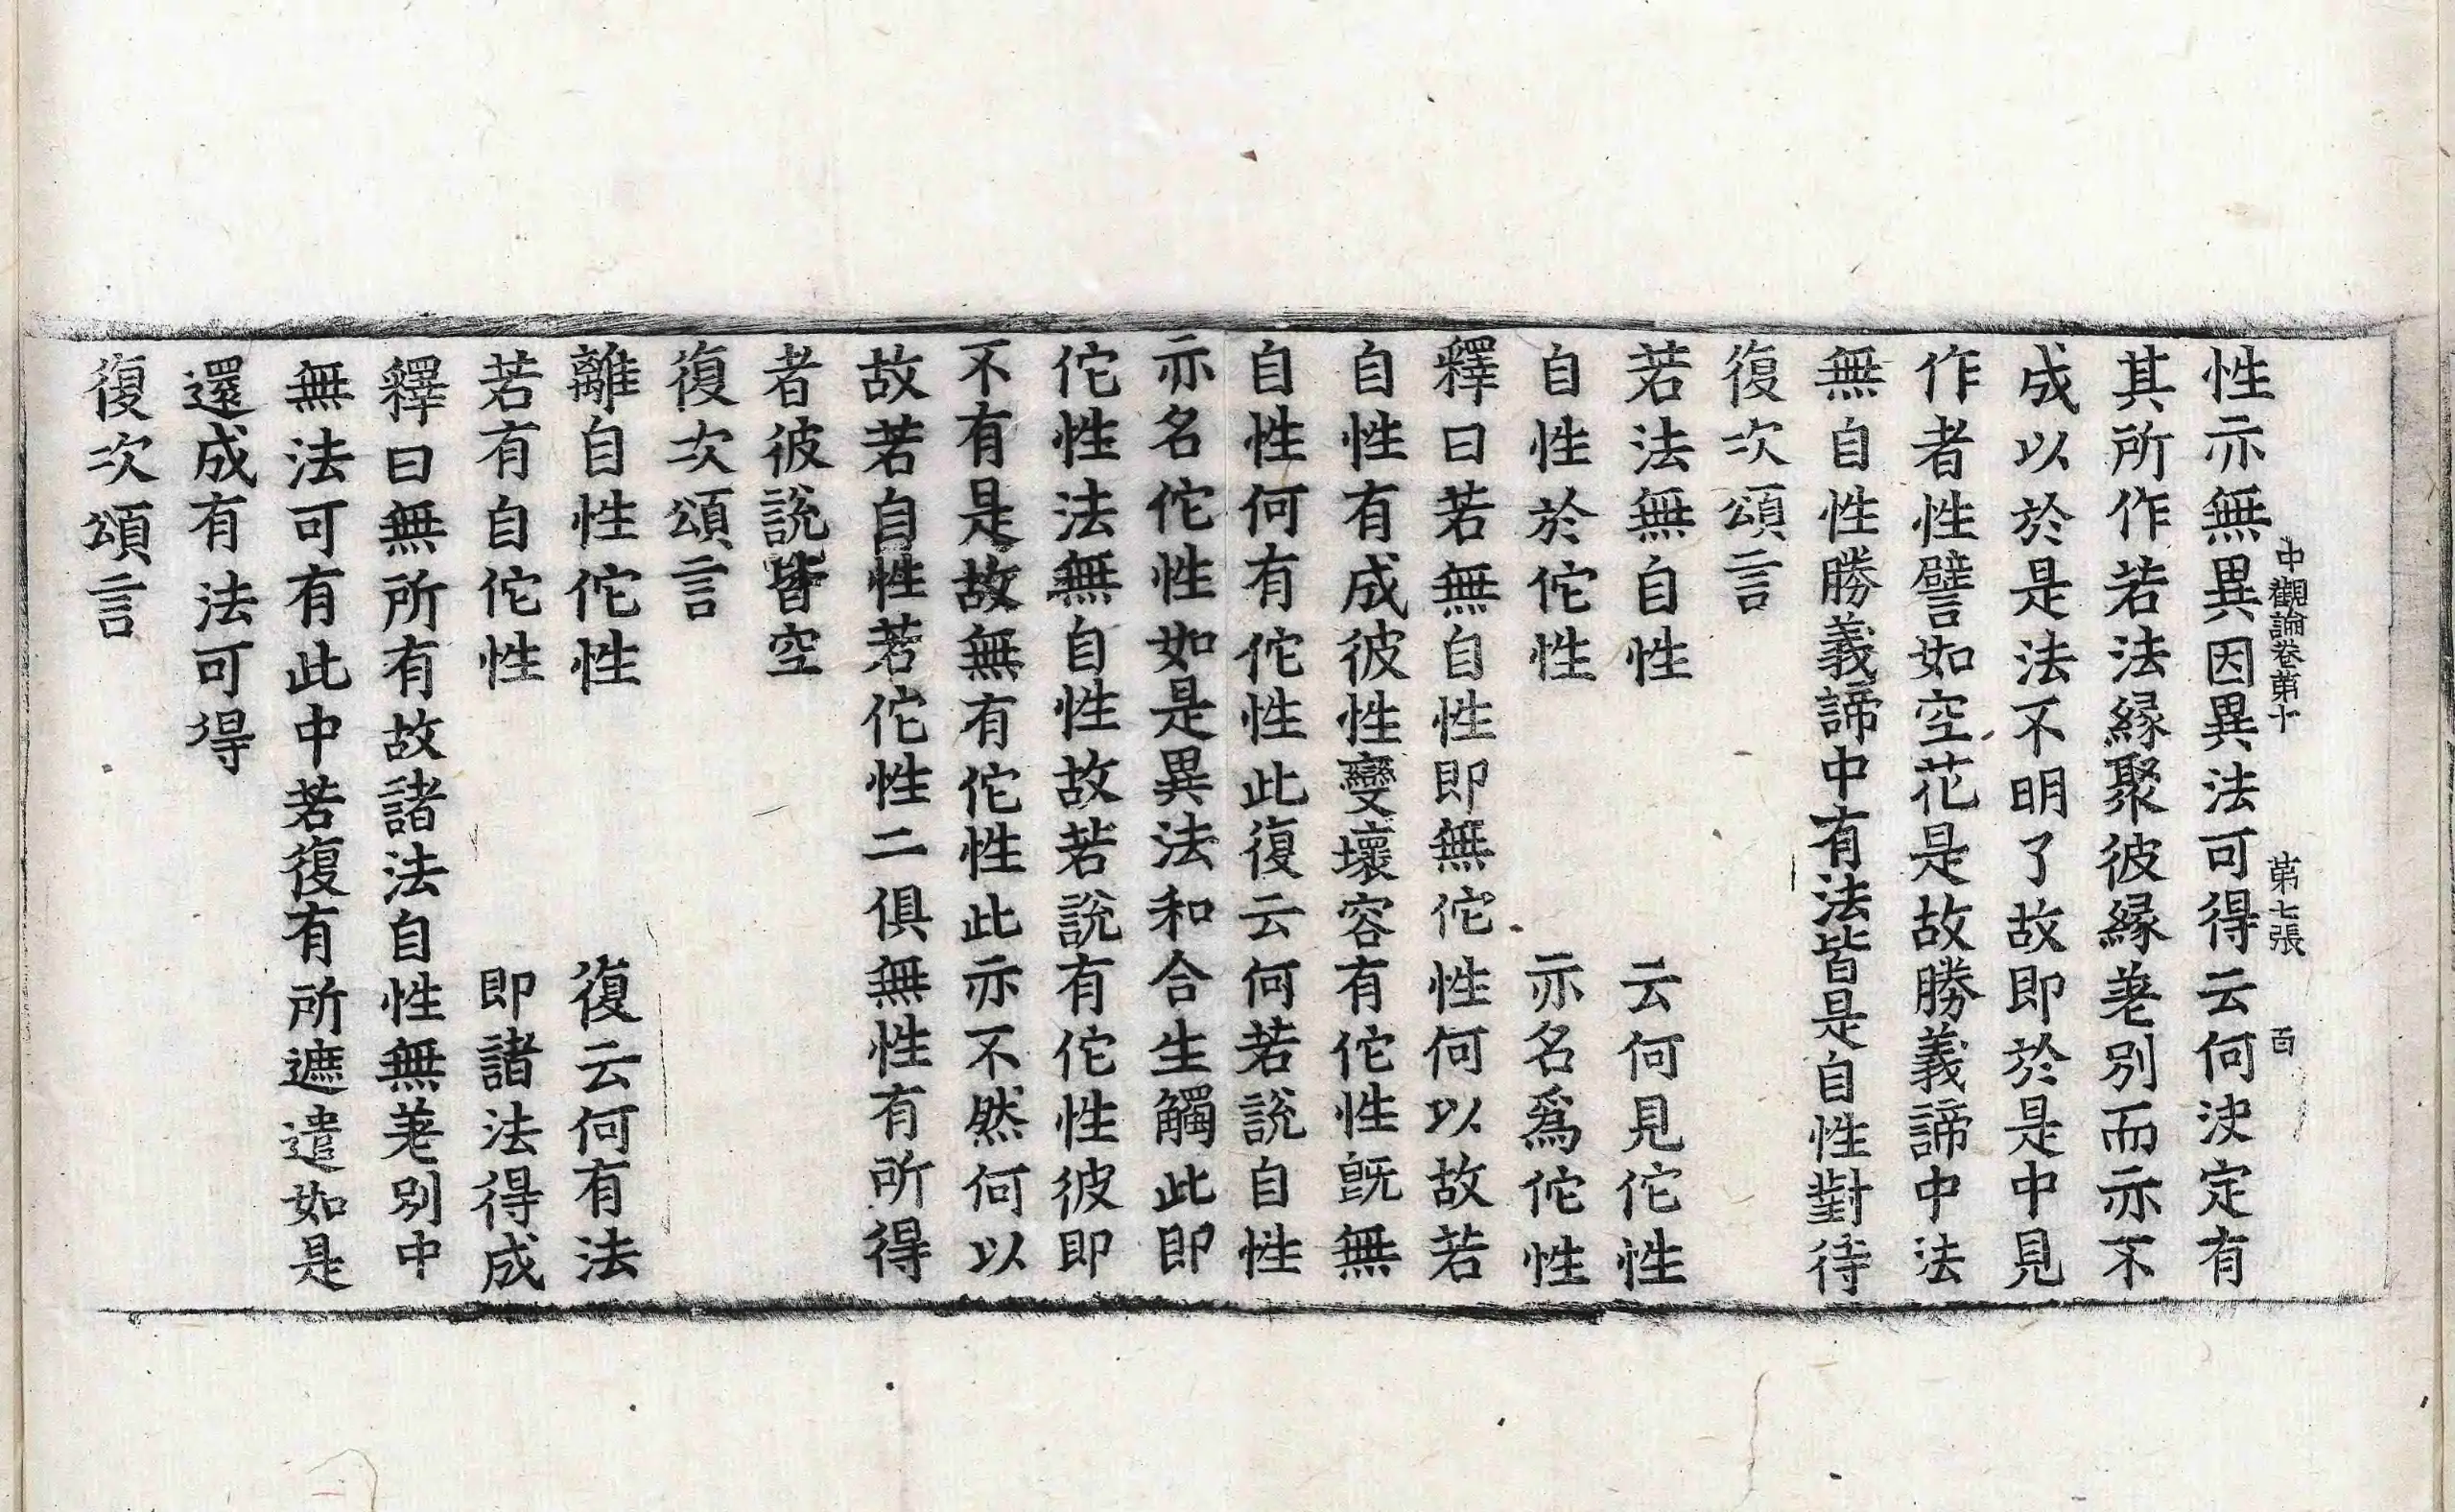 中觀論卷第十　第七張　百
性亦無異因異法可得云何决定有
其所作若法縁聚彼縁差別而亦不
成以於是法不明了故即於是中見
作者性譬如空花是故勝義諦中法
無自性勝義諦中有法皆是自性對待
復次頌言
若法無自性　云何見佗性
自性於佗性　亦名爲佗性
釋曰若無自性即無佗性何以故若
自性有成彼性變壞容有佗性旣無
自性何有佗性此復云何若說自性
亦名佗性如是異法和合生觸此即
佗性法無自性故若說有佗性彼即
不有是故無有佗性此亦不然何以
故若自性若佗性二俱無性有所得
者彼說皆空
復次頌言
離自性佗性　復云何有法
若有自佗性　即諸法得成
釋曰無所有故諸法自性無差別中
無法可有此中若復有所遮遣如是
還成有法可得
復次頌言